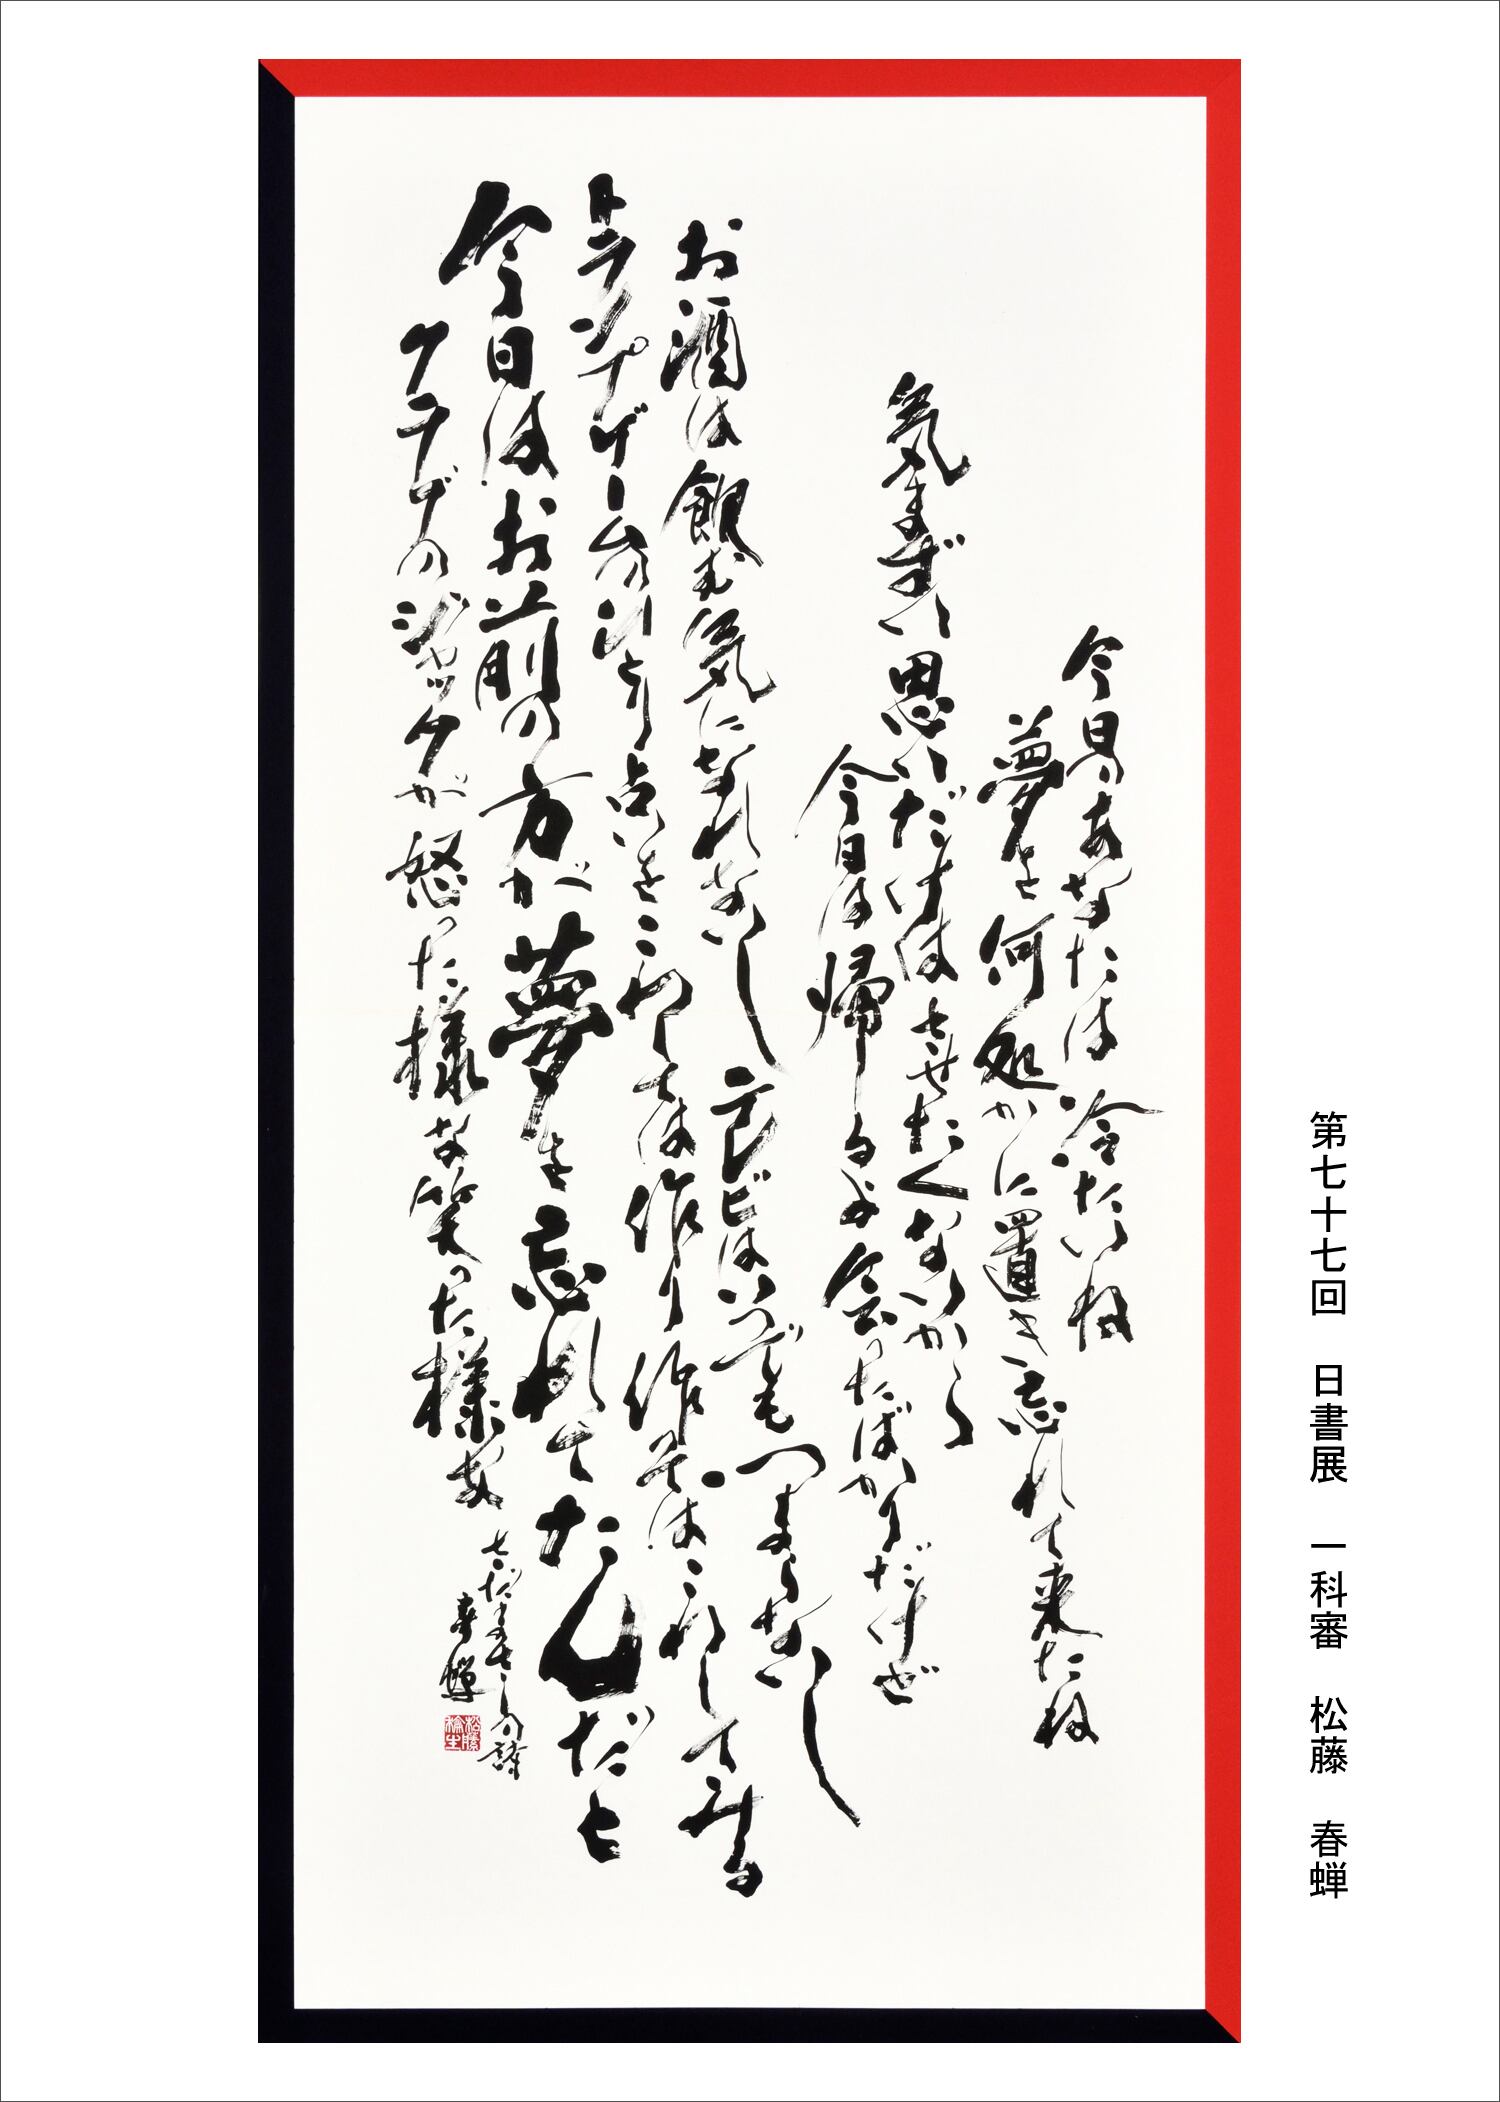 第七十七回　日書展　一科審　松藤　春蝉
今日のあなたは冷たいね
夢を何処かに置き忘れて来たね
気まずい思いだけはさせたくないから
今日は帰るよ会ったばかりだけど
お酒は飲む気になれないしテレビはいつでもつまらないし
トランプゲームのひとり占いをこわしては作り作ってはこわしてみる
今日はお前の方が夢を忘れてたんだと
クラブのジャックが怒った様な笑った様な
さだまさしの詩
春蝉
松藤